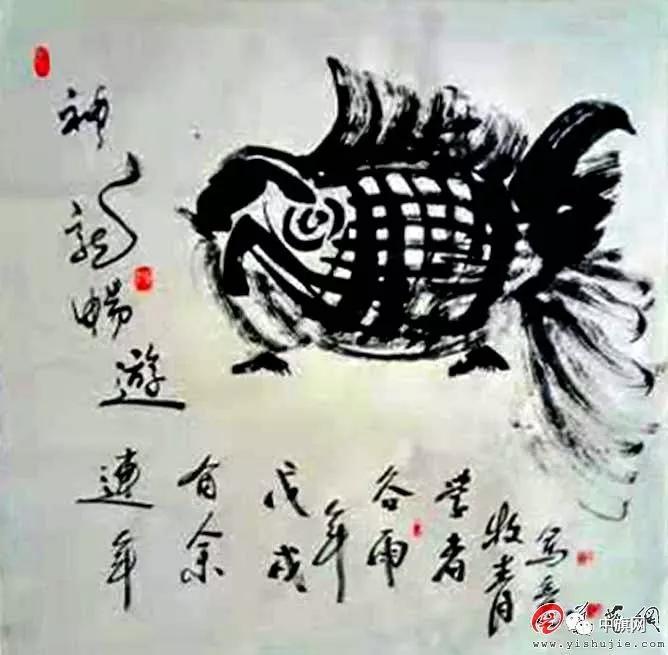 神龍暢遊連年
有余
戊戌
年
谷雨
学者
牧青
中旗网
www.yishujie.com